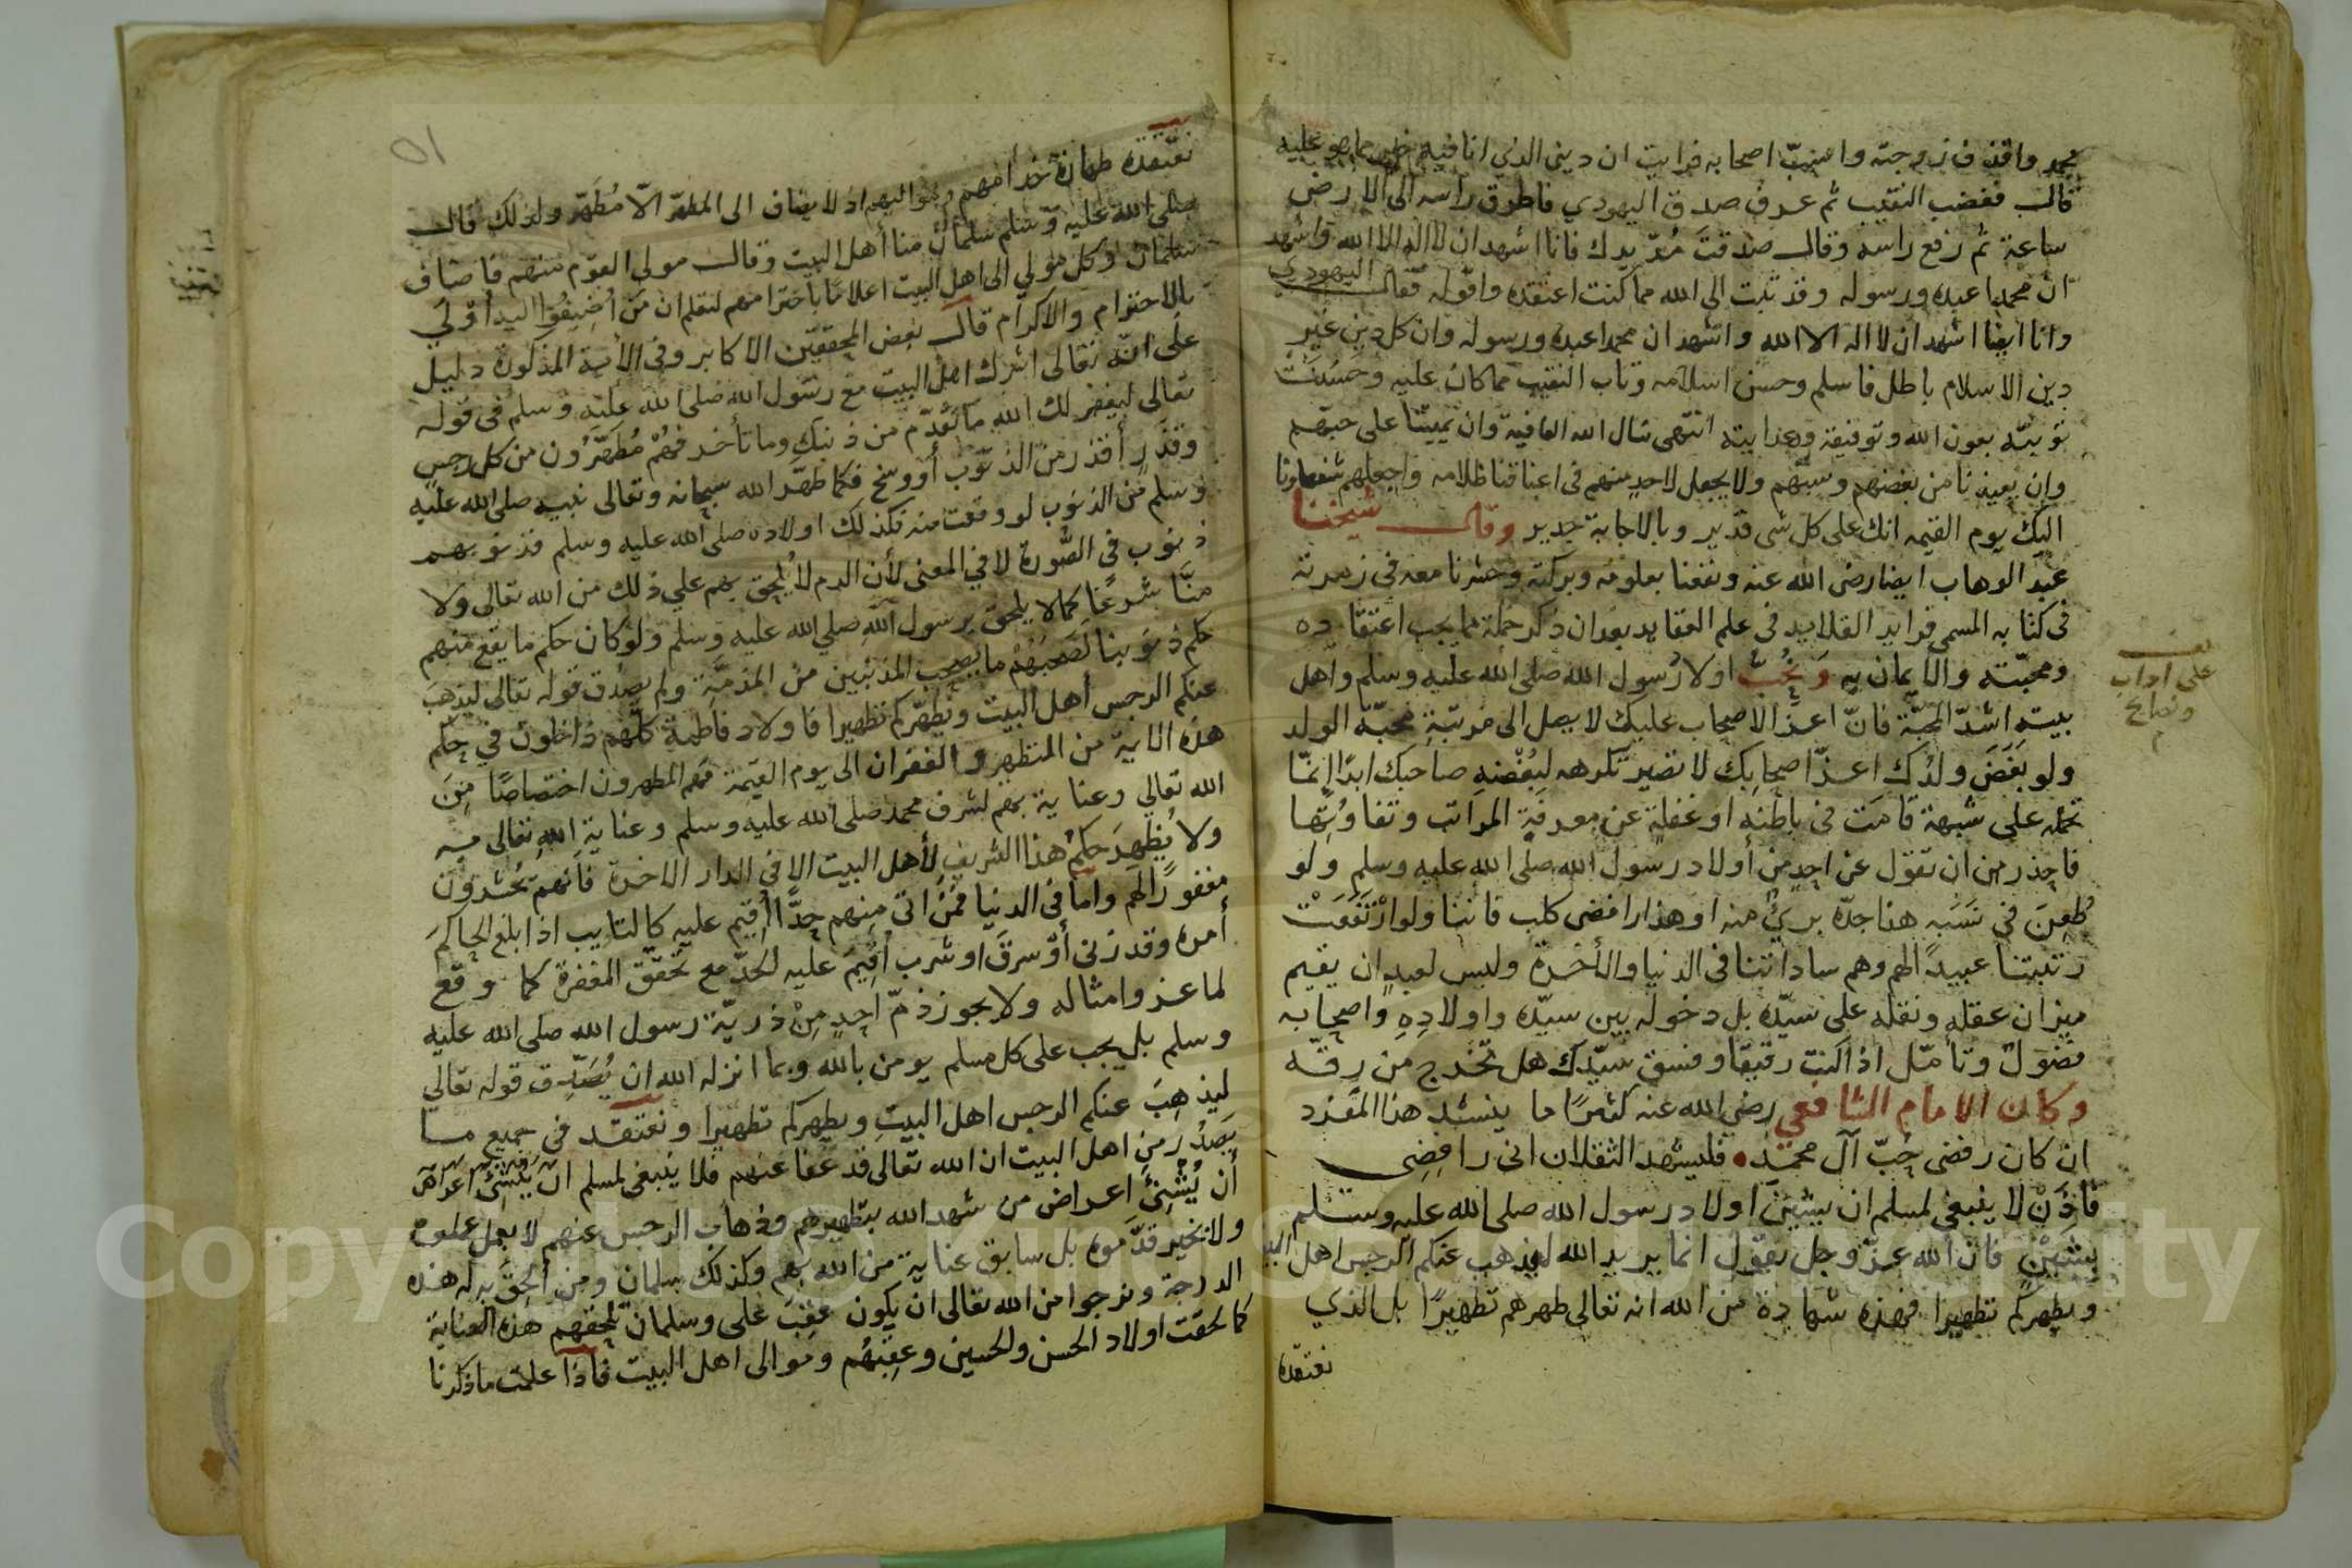 محمد واقذف زوجته واسب اصحابه فرايت ان ديني الذي انا فيه خير مما هو عليه
قال فغضب النقيب ثم عرف صدق اليهودي فاطرق راسه الى الارض
ساعة ثم رفع راسه وقال صدقت مد يدك فانا اشهد ان لا اله الا الله واشهد
ان محمدا عبده ورسوله وقد تبت الى الله مما كنت اعتقده واقوله فقال اليهودي
وانا ايضا اشهد ان لا اله الا الله واشهد ان محمدا عبده ورسوله وان كل دين غير
دين الاسلام باطل فاسلم وحسن اسلامه وتاب النقيب مما كان عليه وحسنت
توبته بعون الله وتوفيقه وهدايته انتهى نسال الله العافية وان يميتنا على حبهم
وان يعيذنا من بغضهم وسبهم ولا يجعل لاحد منهم في اعناقنا ظلامه واجعلهم شفعاونا
اليك يوم القيمه انك على كل شي قدير وبالاجابة جدير وقال شيخنا
عبد الوهاب ايضا رضى الله عنه ونفعنا بعلومه وبركته وحشرنا معه في زمرته
في كتابه المسمى فرايد القلايد في علم العقايد بعد ان ذكر جملة مما يجب اعتقاده
ومحبته والايمان به وَنُحِبُّ اولاد رسول الله صلى الله عليه وسلم واهل
بيته اشدّ المحبّة فانّ اعزّ الاصحاب عليك لا يصل الى مرتبة محبّة الولد
ولو بَغَضَ ولدُك اعزّ اصحابِك لا تصير تكرهه لبُغْضِهِ صاحبك ابدًا إنمّا
تحمله على شبهة قامَت في باطنه او غفلةٍ عن معرفةِ المراتب وتفاوُتِها
فاحذر من ان تقول عن احدٍ من أولاد رسول الله صلى الله عليه وسلم ولو
طُعِنَ في نَسَبِه هذا جدّه برئٌ منه او هذا رافضى كلب فاننا ولو ارْتَفَعَتْ
رتبتنا عبيدًا لهم وهم ساداتنا في الدنيا والأخرة وليس لعبدٍ ان يقيم
ميزان عقله ونقله على سيّده بل دخوله بين سيّده واولادِهِ واصحابه
فضول وتأمّل اذا كنت رقيقًا وفسق سيّدك هل تخرج من رقّه
وكان الامام الشافعي رضي الله عنه كثيرًا ما ينشد هذا المفرد
ان كان رفضى حُبّ آل محمّد • فليشهد الثقلان انى رافِضِى
فاذَنْ لا ينبغى لمسلم ان يشين اولاد رسول الله صلى الله عليه وسلم
بِشَيْنٍ فان الله عزّ وجل يقول انما يريد الله ليذهب عنكم الرجس اهل البيت
ويطهركم تطهيرا فهذه شهادة من الله انه تعالى طهرهم تطهيرًا بل الذي
نعتقده
على اداب
ونصايح
٥١
نعتقده طهارة خدامهم ومواليهم اذ لا يضاف الى المطهّر الّا مُطَهّر ولذلك قال
صلى الله عليه وسلم سلمان منا أهل البيت وقال مولى القوم منهم فاضاف
سلمان وكل مولي الى اهل البيت اعلامًا باحترامهم لتعلم ان من أضيفوا اليه أولى
بالاحترام والاكرام قال بعض المحققين الاكابر وفي الأية المذكورة دليل
على انّه تعالى اشرك اهل البيت مع رسول الله صلى الله عليه وسلم في قوله
تعالى ليغفر لك الله ما تقدّم من ذنبك وما تأخر فهُمْ مُطَهّرُون من كل رجس
وقذر أقذر من الذنوب أو وسخ فكما طهّر الله سبحانه وتعالى نبيه صلى الله عليه
وسلم من الذنوب لو وقعت منه فكذلك اولاده صلى الله عليه وسلم فذنوبهم
ذنوب في الصّورة لا في المعنى لأن الذم لا يُلحق بهم علي ذلك من الله تعالى ولا
منّا شرعًا كما لا يلحق برسول الله صلي الله عليه وسلم ولو كان حكم ما يقع منهم
حكم ذنوبنا لصحبُهُمْ ما يصحب المذنبين من المذمّة ولم يصدق قوله تعالى ليذهبَ
عنكم الرجس أهل البيت ويطهّركم تطهيرا فاولاد فاطمة كلّهم داخلون في حكم
هذه الاية من التطهير والغفران الى يوم القيمة فهم المطهرون اختصاصًا مِنَ
الله تعالي وعناية بهم لشرف محمد صلى الله عليه وسلم وعناية الله تعالى به
ولا يُظهِرَ حكمُ هذا الشريف لأهل البيت الا في الدار الاخرة فأنهم يُحْشرون
مغفورًا لهم واما في الدنيا فمَنْ اتى مِنهم حِدًّا أُقِيم عليه كالتايب اذا بلغ الحاكمَ
أمره وقد زنى أوْ سرق او شرب أُقِيمَ عليه الحدّ مع تحقّق المغفرة كما وقع
لماعز وامثاله ولا يجوز ذمّ احدٍ مِنْ ذريّة رسول الله صلى الله عليه
وسلم بل يجب على كل مسلم يومن بالله وبما انزله الله ان يُصَدِّق قوله تعالي
ليذهِبَ عنكم الرجس اهل البيتِ ويطهركم تطهيرا ونعتقد في جميع ما
يَصدُر من اهل البيت ان الله تعالى قد عفا عنهم فلا ينبغى لمسلم
أن يُشْنِئ اعراض من شهد الله بتطهيرهم وذهاب الرجس عنهم لا بعمل عملوه
ولا بخير قدّموه بل سابق عناية من الله بهم وكذلك سلمان ومن ألحِقَ به له هذه
الدرجة ونرجوا من الله تعالى ان يكون عقِبَ على وسلمان تلحقهم هذه العناية
كما لحقت اولاد الحسن والحسين وعقِبَهُم وموالى اهل البيت فاذا علمت ما ذكرنا
Copyright © King Saud University